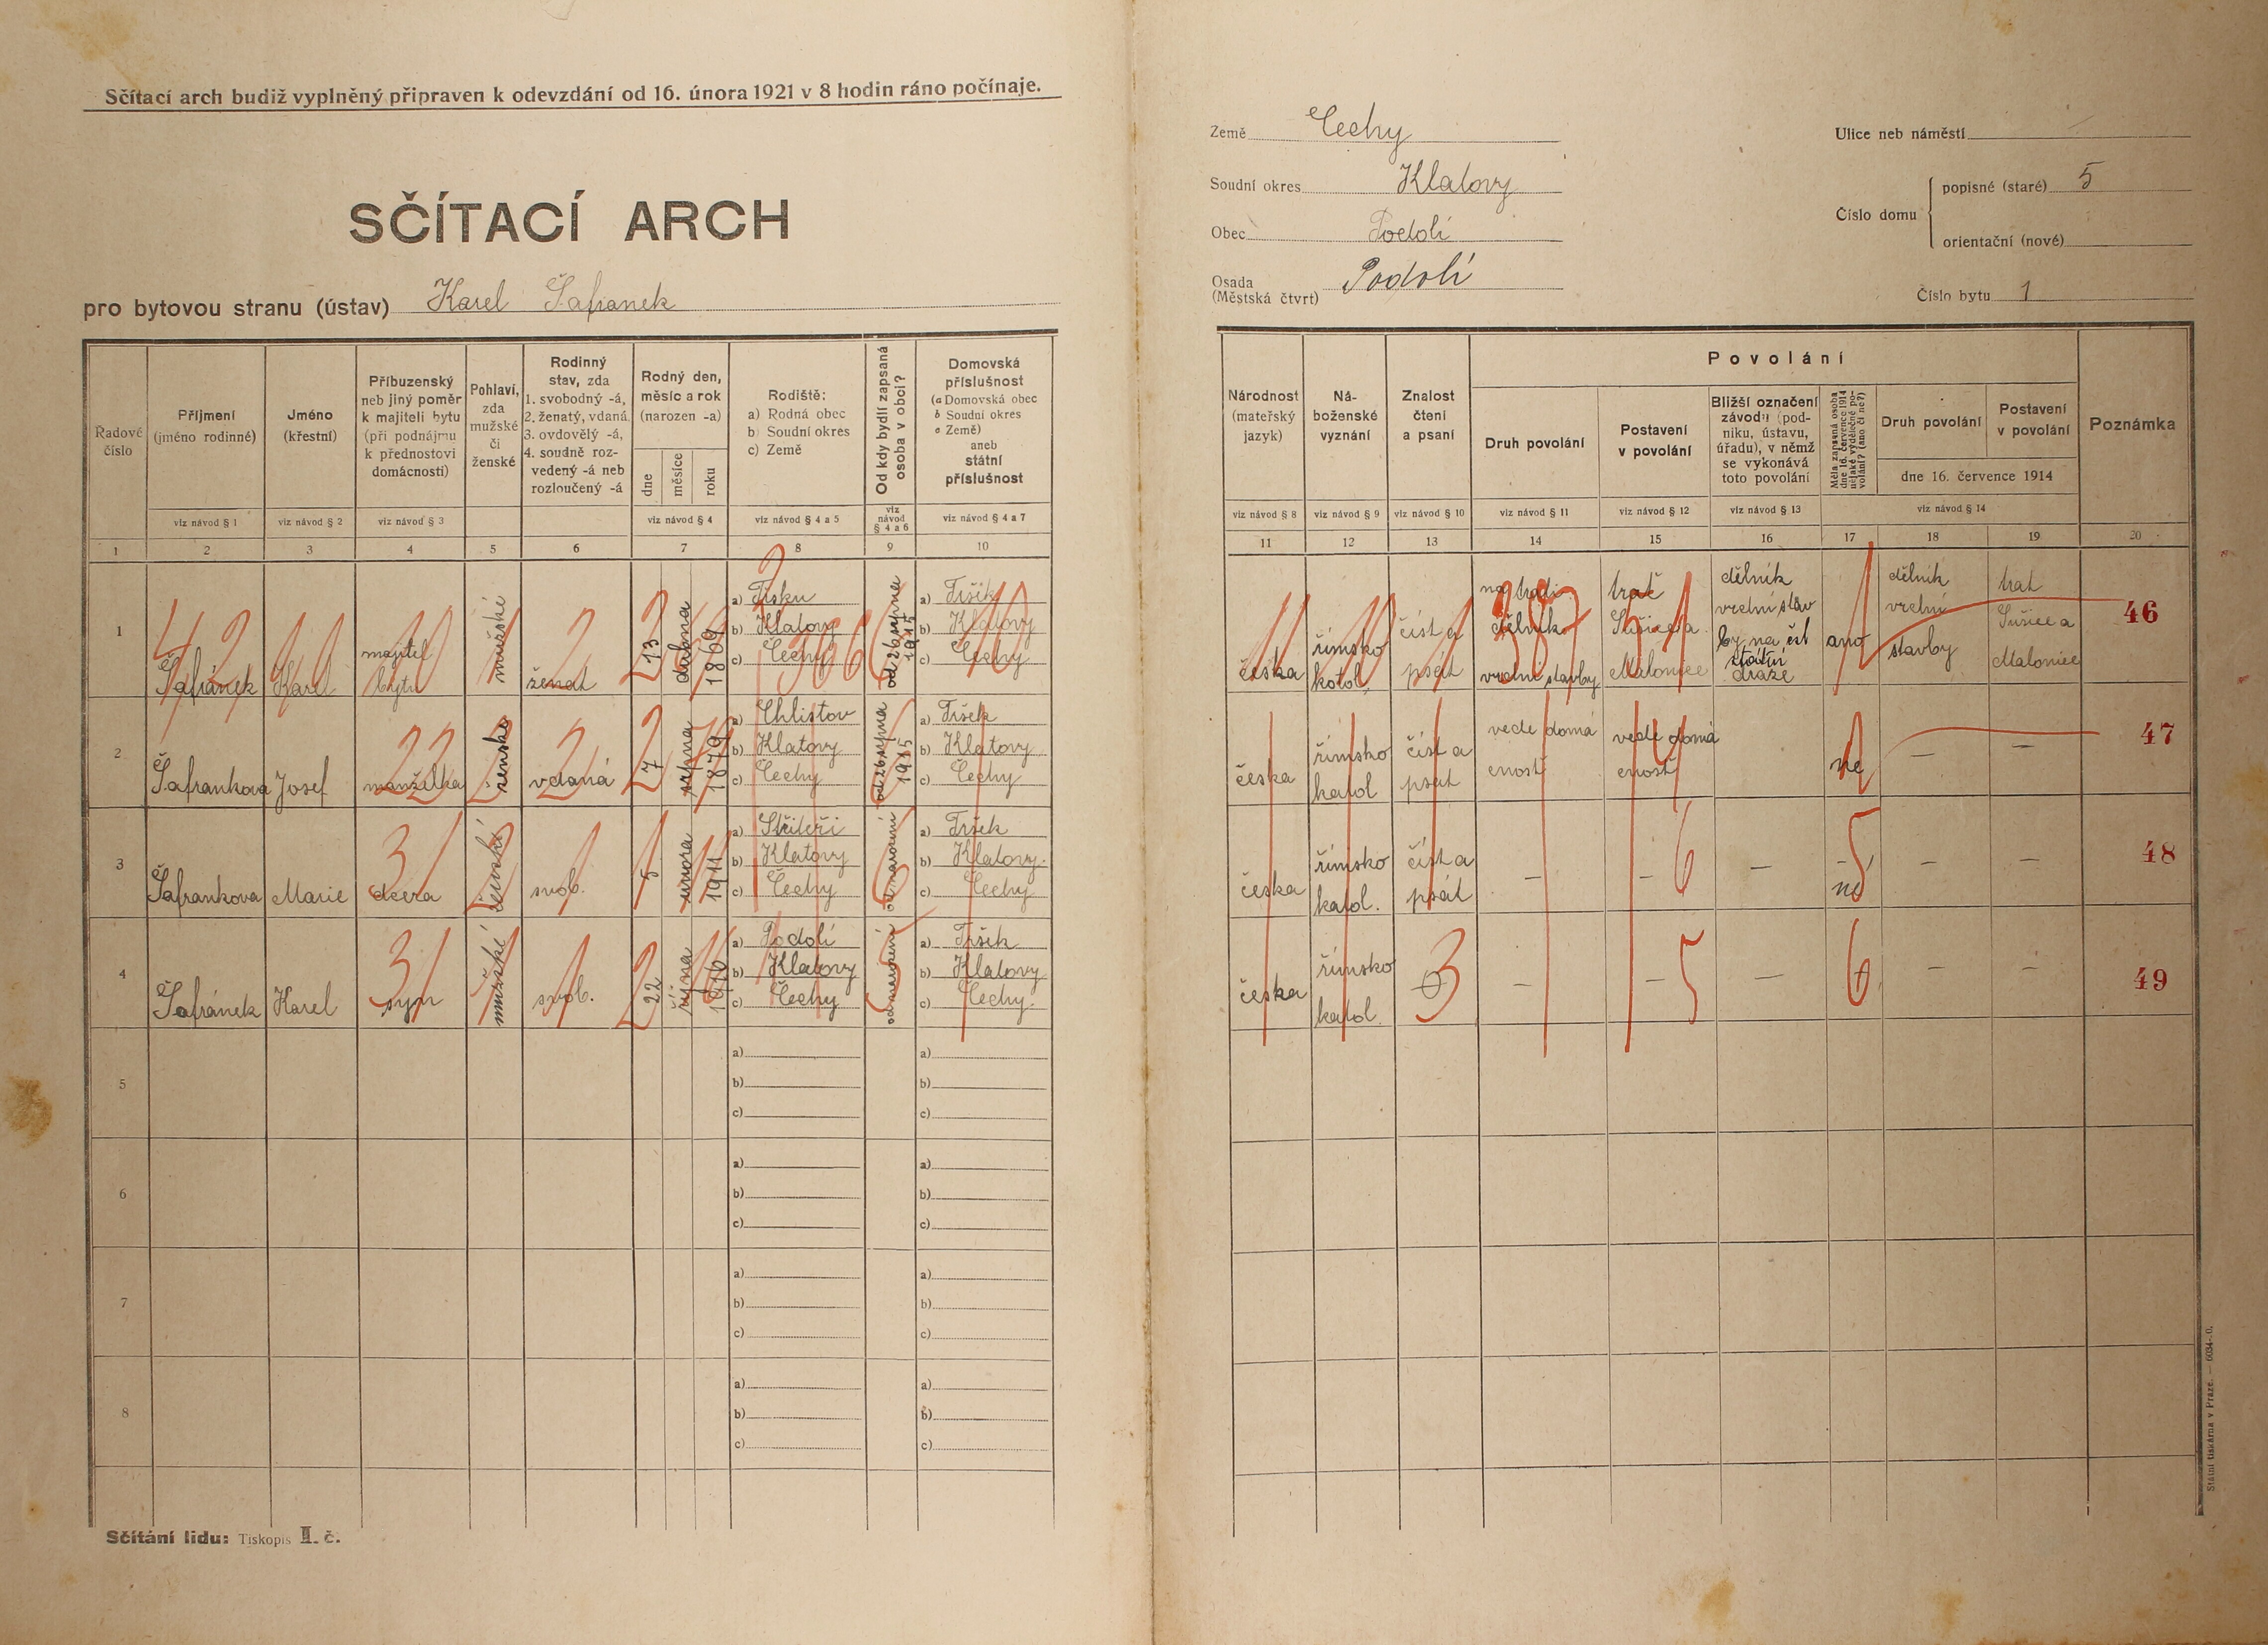 Sčítací arch budiž vyplněný připraven k odevzdání od 16. února 1921 v 8 hodin ráno počínaje.
SČÍTACÍ ARCH
pro bytovou stranu (ústav) Karel Šafranek
Země Čechy
Soudní okres Klatovy
Obec Podolí
Osada Podolí
(Městská čtvrt)
Ulice neb náměstí
Číslo domu
popisné (staré) 5
orientační (nové)
Číslo bytu 1
Řadové číslo
Příjmení (jméno rodinné)
Jméno (křestní)
Příbuzenský neb jiný poměr k majiteli bytu (při podnájmu k přednostovi domácnosti)
Pohlaví, zda mužské či ženské
Rodinný stav, zda 1. svobodný -á, 2. ženatý, vdaná, 3. ovdovělý -á, 4. soudně rozvedený -á neb rozloučený -á
Rodný den, měsíc a rok (narozen -a)
dne měsíce roku
Rodiště: a) Rodná obec b) Soudní okres c) Země
Od kdy bydlí zapsaná osoba v obci?
Domovská příslušnost (a Domovská obec b Soudní okres c Země) aneb státní příslušnost
viz návod § 1 viz návod § 2 viz návod § 3 viz návod § 4 viz návod § 4 a 5 viz návod § 4 a 6 viz návod § 4 a 7
1 2 3 4 5 6 7 8 9 10
Národnost (mateřský jazyk)
Náboženské vyznání
Znalost čtení a psaní
Povolání
Druh povolání
Postavení v povolání
Bližší označení závodu (podniku, ústavu, úřadu), v němž se vykonává toto povolání
Měla zapsaná osoba dne 16. července 1914 nějaké výdělečné povolání? (ano či ne?)
Druh povolání
Postavení v povolání
dne 16. července 1914
Poznámka
viz návod § 8 viz návod § 9 viz návod § 10 viz návod § 11 viz návod § 12 viz návod § 13 viz návod § 14
11 12 13 14 15 16 17 18 19 20
1 Šafránek Karel majitel bytu mužské ženat 13 dubna 1869
a)
b) Klatovy
c) Čechy
a) Tršek
b) Klatovy
c) Čechy
česka římsko katol. číst a psát
dělník vrchní stavby
trať Sušice a Malonice
dělník vrchní stavby na čsl státní dráze
ano
dělník vrchní stavby
trať Sušice a Malonice
46
2 Šafrankova Josef manželka ženské vdaná 7 srpna 1879
a) Chlistov
b) Klatovy
c) Čechy
od 26 srpna 1915
a) Tršek
b) Klatovy
c) Čechy
česka římsko katol číst a psát
vede domácnost
vede domácnost
ne – –
47
3 Šafrankova Marie dcera ženské svob. 8 února 1911
a)
b) Klatovy
c) Čechy
od narození
a) Tršek
b) Klatovy.
c) Čechy
česka římsko katol. číst a psát – – – ne – –
48
4 Šafránek Karel syn mužské svob. 22 října 1916
a) Podolí
b) Klatovy
c) Čechy
od narození
a) Tršek
b) Klatovy
c) Čechy.
česka římsko katol. – – – – –
49
5
a)
b)
c)
a)
b)
c)
6
a)
b)
c)
a)
b)
c)
7
a)
b)
c)
a)
b)
c)
8
a)
b)
c)
a)
b)
c)
Sčítání lidu: Tiskopis II. č.
Státní tiskárna v Praze. — 6034-0.